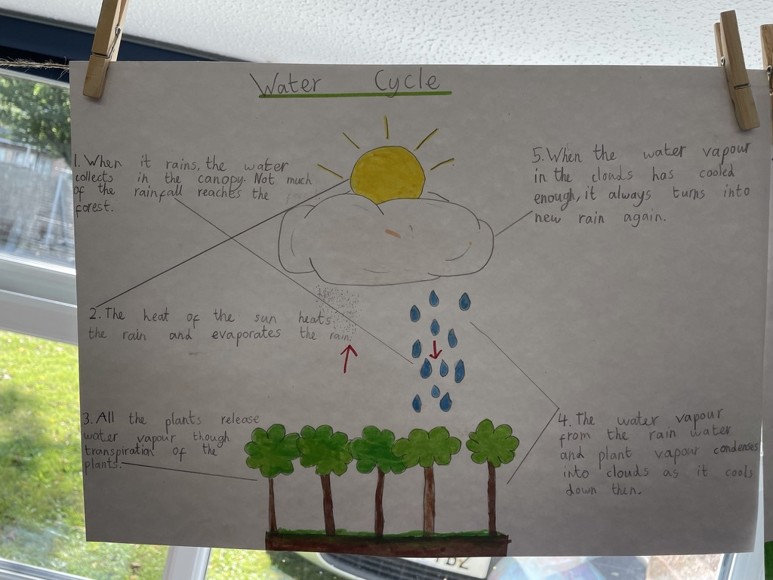 Water Cycle
1. When it rains, the water
collects in the canopy. Not much
of the rainfall reaches the
forest.
2. The heat of the sun heats
the rain and evaporates the rain.
3. All the plants release
water vapour though
transpiration of the
plants.
4. The water vapour
from the rain water
and plant vapour condenses
into clouds as it cools
down then.
5. When the water vapour
in the clouds has cooled
enough, it always turns into
new rain again.